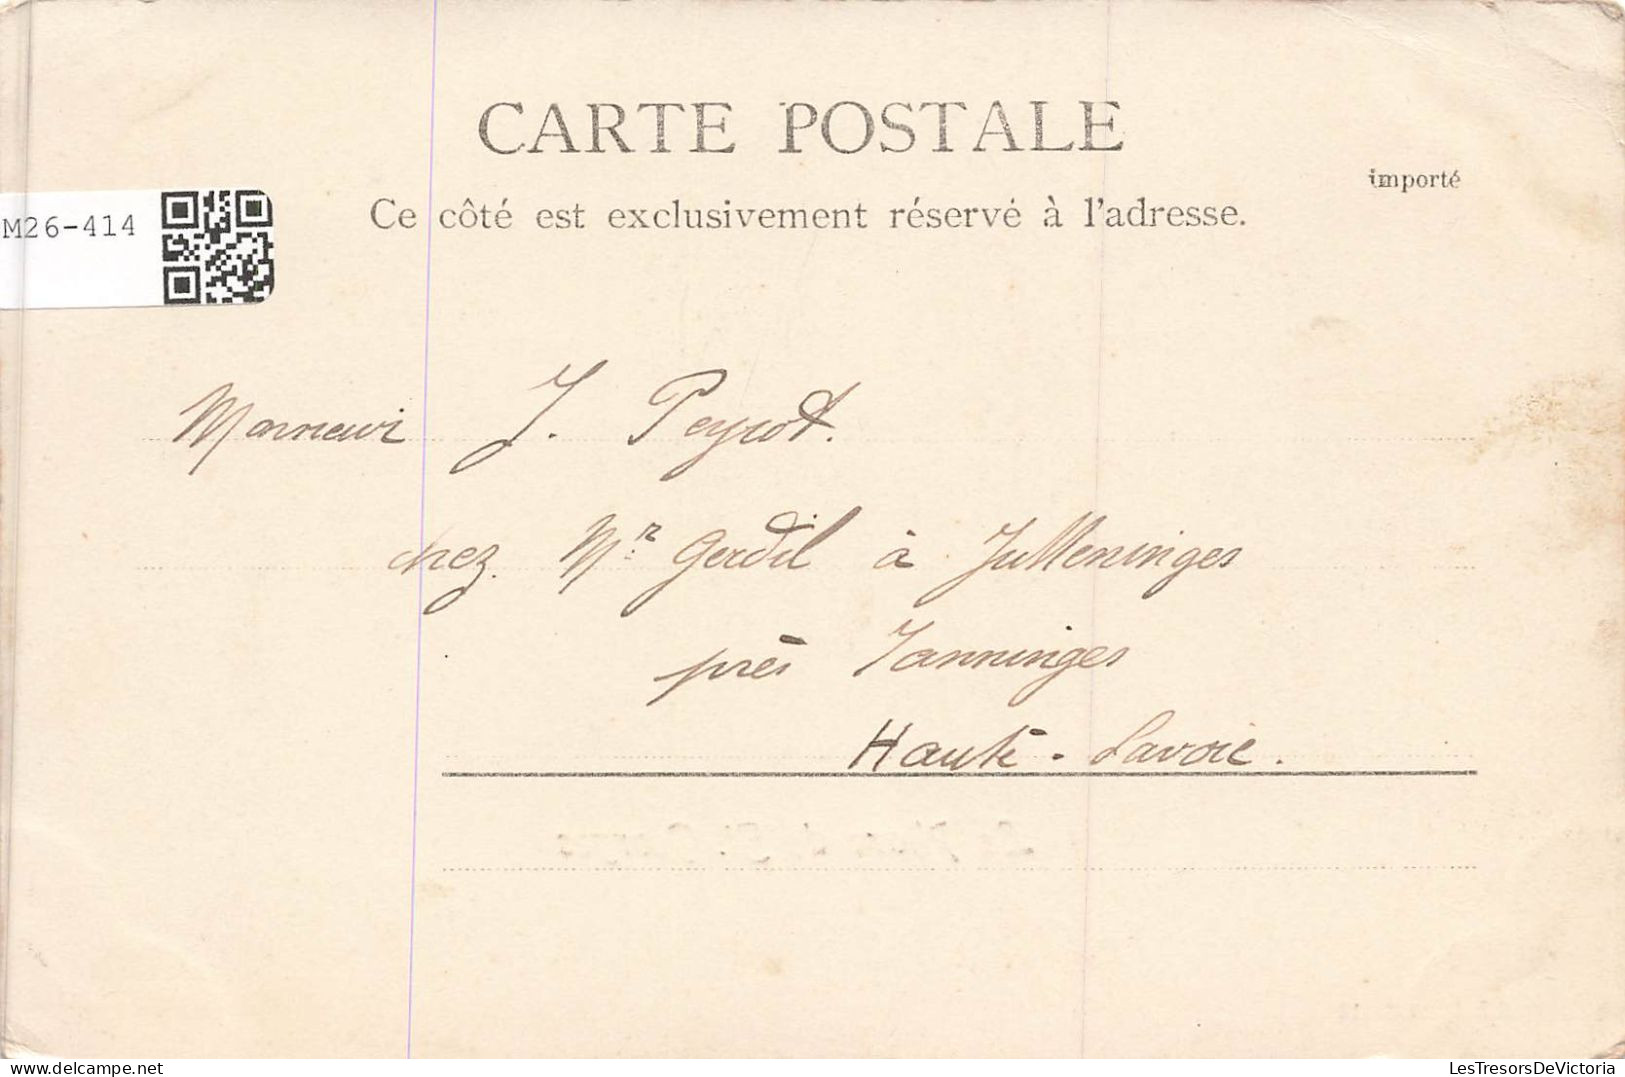 CARTE POSTALE
importé
Ce côté est exclusivement réservé à l'adresse.
M26-414
Monsieur J. Peyrot.
chez Mr Gerdil à Jutteninges
près Tanninges
Haute-Savoie.
delcampe.net
LesTresorsDeVictoria